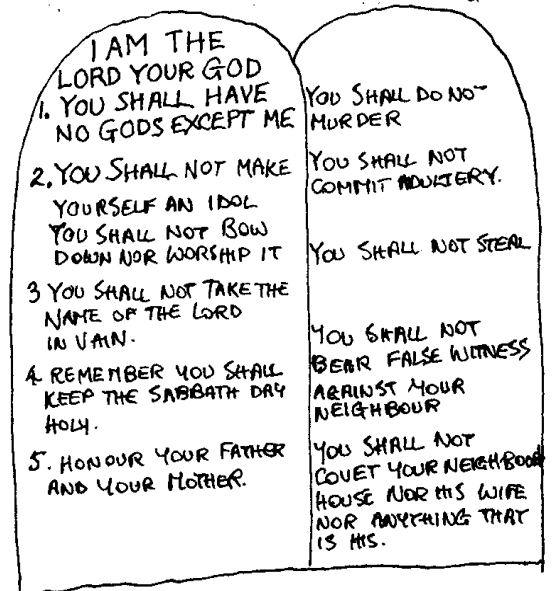 I AM THE
LORD YOUR GOD
1. YOU SHALL HAVE
NO GODS EXCEPT ME
2. YOU SHALL NOT MAKE
YOURSELF AN IDOL
YOU SHALL NOT BOW
DOWN NOR WORSHIP IT
3 YOU SHALL NOT TAKE THE
NAME OF THE LORD
IN VAIN.
4 REMEMBER YOU SHALL
KEEP THE SABBATH DAY
HOLY.
5. HONOUR YOUR FATHER
AND YOUR MOTHER.
YOU SHALL DO NO
MURDER
YOU SHALL NOT
COMMIT ADULTERY.
YOU SHALL NOT STEAL
YOU SHALL NOT
BEAR FALSE WITNESS
AGAINST YOUR
NEIGHBOUR
YOU SHALL NOT
COVET YOUR NEIGHBOUR
HOUSE NOR HIS WIFE
NOR ANYTHING THAT
IS HIS.